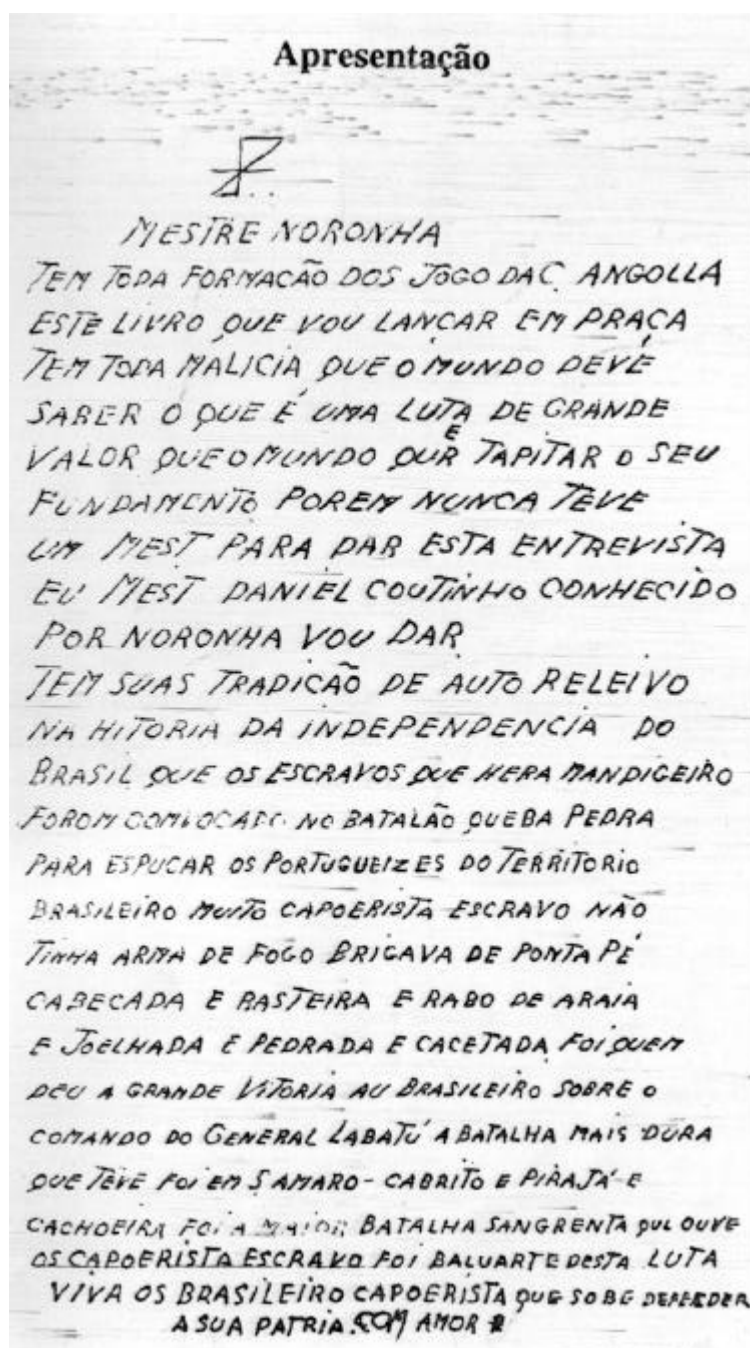 Apresentação
MESTRE NORONHA
TEM TODA FORMACÃO DOS JOGO DA C. ANGOLLA
ESTE LIVRO QUE VOU LANCAR EM PRAÇA
TEM TODA MALICIA QUE O MUNDO DEVE
SABER O QUE É UMA LUTA DE GRANDE
VALOR QUE O MUNDO QUER TAPITAR O SEU
FUNDAMENTO POREM NUNCA TEVE
UM MEST PARA DAR ESTA ENTREVISTA
EU MEST DANIEL COUTINHO CONHECIDO
POR NORONHA VOU DAR
TEM SUAS TRADICÃO DE AUTO RELEIVO
NA HITORIA DA INDEPENDENCIA DO
BRASIL QUE OS ESCRAVOS QUE HERA MANDIGEIRO
FOROM NO BATALÃO QUEBA PEDRA
PARA ESPUCAR OS PORTUGUEIZES DO TERRITORIO
BRASILEIRO MUITO CAPOERISTA ESCRAVO NÃO
TINHA ARMA DE FOGO BRIGAVA DE PONTA PÉ
CABECADA E RASTEIRA E RABO DE ARAIA
E JOELHADA E PEDRADA E CACETADA FOI QUEM
DEU A GRANDE VITORIA AU BRASILEIRO SOBRE O
COMANDO DO GENERAL LABATÚ A BATALHA MAIS DURA
QUE TEVE FOI EM SAMARO - CABRITO E PIRAJÁ - E
CACHOEIRA FOI A MAIOR BATALHA SANGRENTA QUE OUVE
OS CAPOERISTA ESCRAVO FOI BALUARTE DESTA LUTA
VIVA OS BRASILEIRO CAPOERISTA QUE SOBE DEFEEDER
A SUA PATRIA. COM AMOR